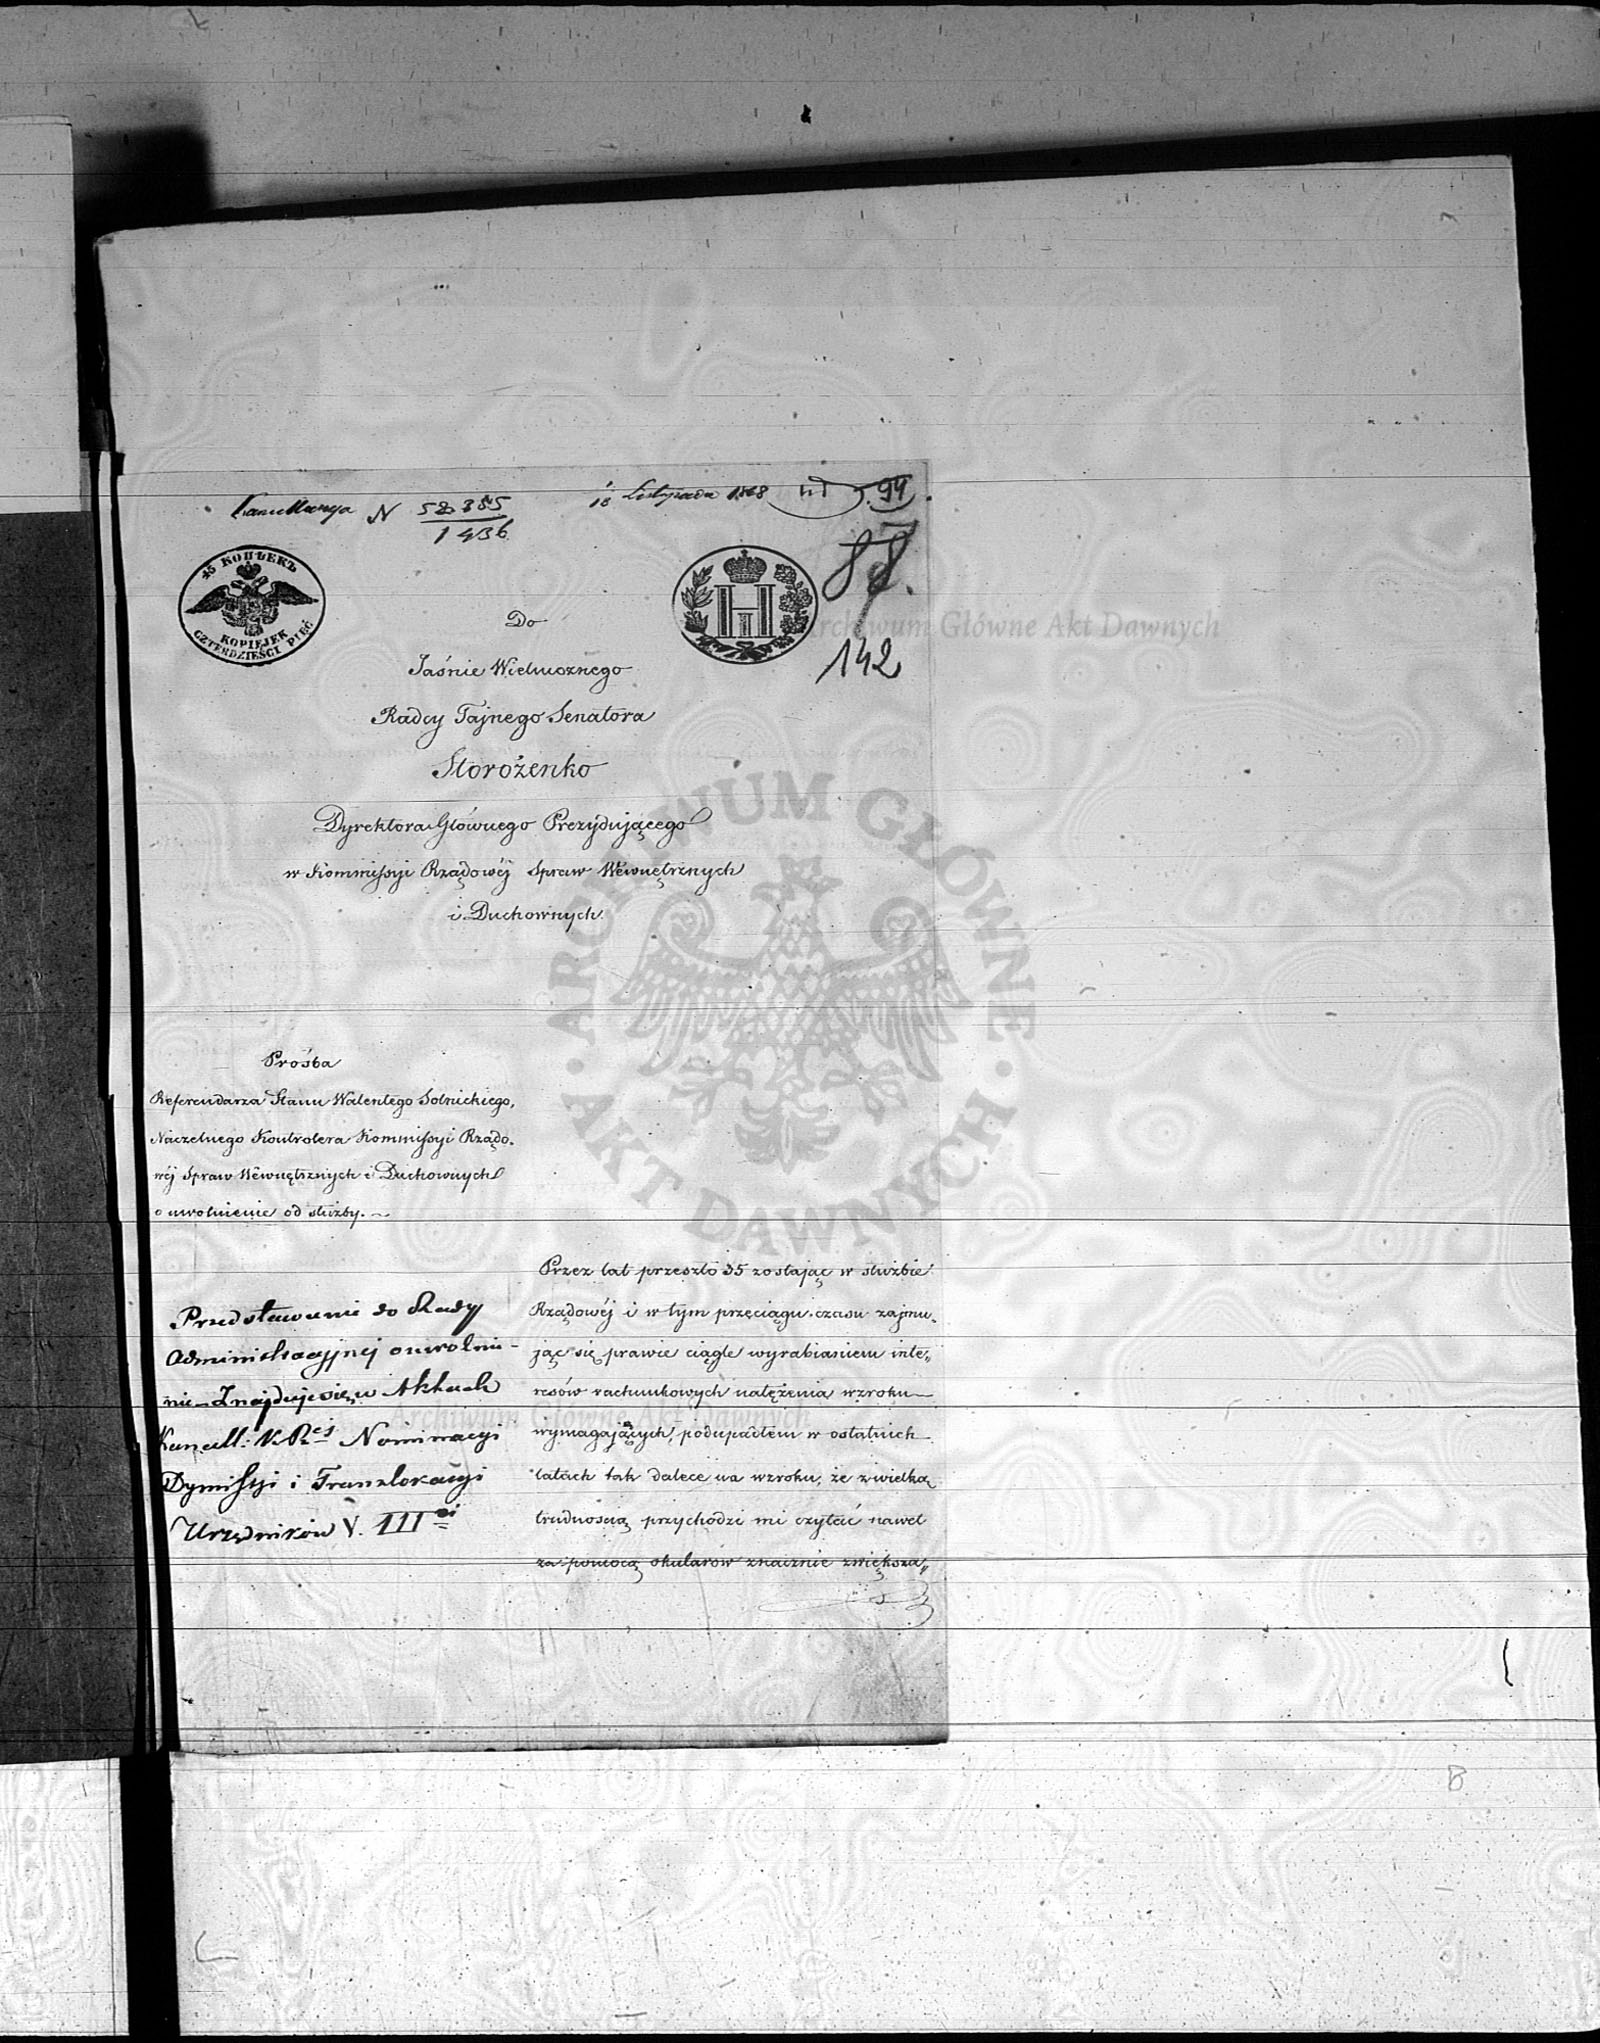 Kancellarya N 52385
1436
18 Listopada 1848
94
88.
142
45 КОПѢЕКЪ
KOPIEJEK
CZTERDZIEŚCI PIĘĆ
Do
Jaśnie Wielmożnego
Radcy Tajnego Senatora
Storożenko
Dyrektora Głównego Prezydującego
w Kommissyi Rządowéj Spraw Wewnętrznych
i Duchownych
Prośba
Referendarza Stanu Walentego Solnickiego,
Naczelnego Kontrolera Kommissyi Rządo-
wéj Spraw Wewnętrznych i Duchownych
o uwolnienie od służby.
Przez lat przeszło 35 zostając w służbie
Rządowéj i w tym przeciągu czasu zajmu-
jąc się prawie ciągle wyrabianiem inte-
resów rachunkowych natężenia wzroku
wymagających, podupadłem w ostatnich
latach tak dalece na wzroku, że z wielką
trudnością przychodzi mi czytać nawet
za pomocą okularów znacznie zwiększa-
Przedstawienie do Rady
Administracyjnej o uwolnie-
nie znajduje się w Aktach
Kancell: Nominacyi
Dymissyi i Translokacyi
Urzędników V. III
ARCHIWUM GŁÓWNE
AKT DAWNYCH
Archiwum Główne Akt Dawnych
Archiwum Główne Akt Dawnych